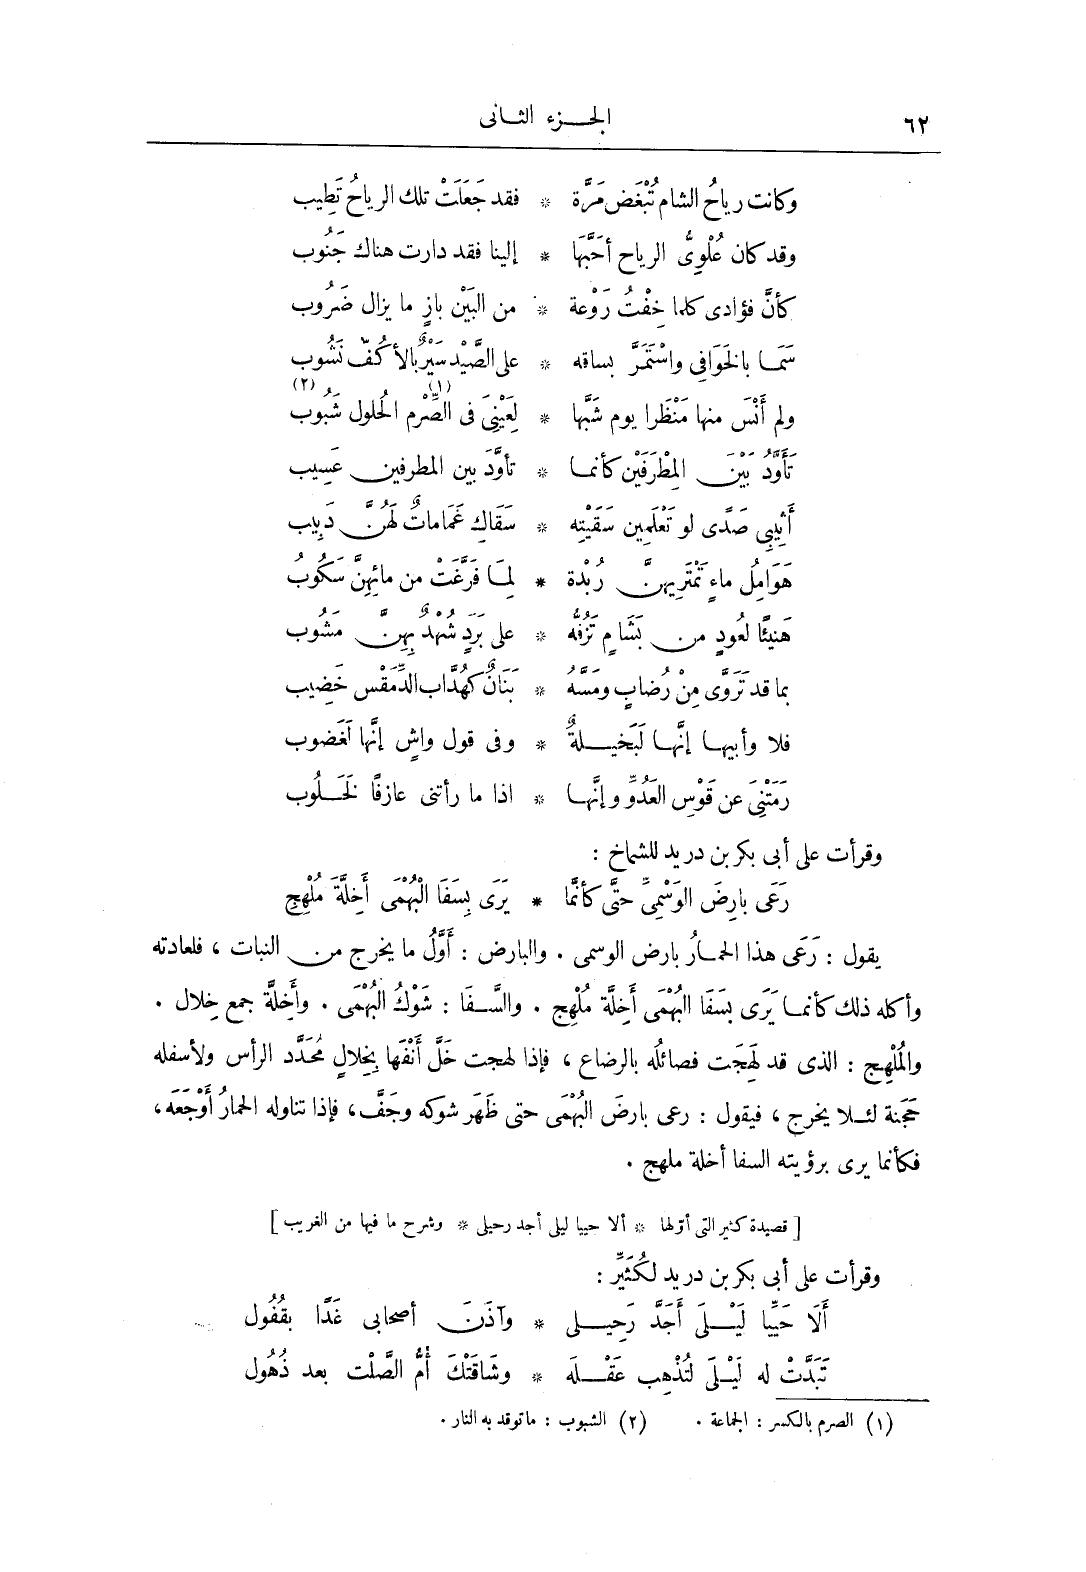 ٦٢ الجزء الثانى
وكانت رياحُ الشام تُبْغَض مَرَّة * فقد جَعَلَتْ تلك الرياحُ تَطِيب
وقد كان عُلْوِىُّ الرياح أحَبَّها * إلينا فقد دارت هناك جَنُوب
كأنَّ فؤادى كلما خِفْتُ رَوْعة * من البَيْن بازٍ ما يزال ضَرُوب
سَمَا بالخَوَافِى واسْتَمَرَّ بساقه * على الصَّيْد سَيْرٌ بالأكُفّ نَشُوب
ولم أَنْسَ منها مَنْظَرا يوم شَبَّها * لِعَيْنِىَ فى الصِّرْم (١) الحُلول شَبُوب (٢)
تَأَوَّدُ بَيْنَ المِطْرَفَيْن كأنما * تأوَّدَ بين المطرفين عَسِيب
أَثِيبِى صَدًى لو تَعْلَمِين سَقَيْتِه * سَقَاكِ غَمَاماتٌ لَهُنَّ دَبِيب
هَوَامِلُ ماءٍ تَمْتَرِيهنَّ رُبْدة * لِمَا فَرَّغَتْ من مائِهِنَّ سَكُوبُ
هَنِيئًا لعُودٍ من بَشَامٍ تَزُفُّه * على بَرَدٍ شُهْدٌ بِهِنَّ مَشُوب
بما قد تَرَوَّى مِنْ رُضابٍ ومَسَّهُ * بَنَانٌ كهُدَّاب الدِّمَقْس خَضِيب
فلا وأبيها إنَّها لَبَخيلةٌ * وفى قول واشٍ إنَّها لَغَضوب
رَمَتْنِىَ عن قَوْسِ العَدُوِّ وإنَّها * اذا ما رأتنى عازفًا لخَلُوب
وقرأت على أبى بكر بن دريد للشماخ :
رَعَى بارِضَ الوَسْمِىِّ حتَّى كأنَّما * يَرَى بِسَفَا الْبُهْمَى أَخِلَّةَ مُلْهِجِ
يقول : رَعَى هذا الحمارُ بارض الوسمى . والبارض : أوَّلُ ما يخرج من النبات ، فلعادته
وأكله ذلك كأنما يَرَى بسَفَا البُهْمَى أَخِلَّة مُلْهِج . والسَّفَا : شَوْكُ البُهْمَى . وأَخِلَّة جمع خِلال .
والمُلْهِج : الذى قد لَهِجَت فصائلُه بالرضاع ، فإذا لهجت خَلَّ أَنْفَها بخِلالٍ مُحَدَّد الرأس ولأسفله
حَجَنة لئلا يخرج ، فيقول : رعى بارضَ البُهْمَى حتى ظَهَر شوكه وجَفَّ ، فإذا تناوله الحمارُ أَوْجَعَه ،
فكأنما يرى برؤيته السفا أخلة ملهج .
[ قصيدة كثير التى أوّلها * ألا حييا ليلى أجد رحيلى * وشرح ما فيها من الغريب ]
وقرأت على أبى بكر بن دريد لكُثَيِّر :
أَلَا حَيِّيَا لَيْلَى أَجَدَّ رَحِيلى * وآذَنَ أصحابى غَدًا بقُفُول
تَبَدَّتْ له لَيْلَى لتُذْهِب عَقْلَه * وشَاقَتْكَ أُمُّ الصَّلْت بعد ذُهُول
(١) الصرم بالكسر : الجماعة . (٢) الشبوب : ما توقد به النار .